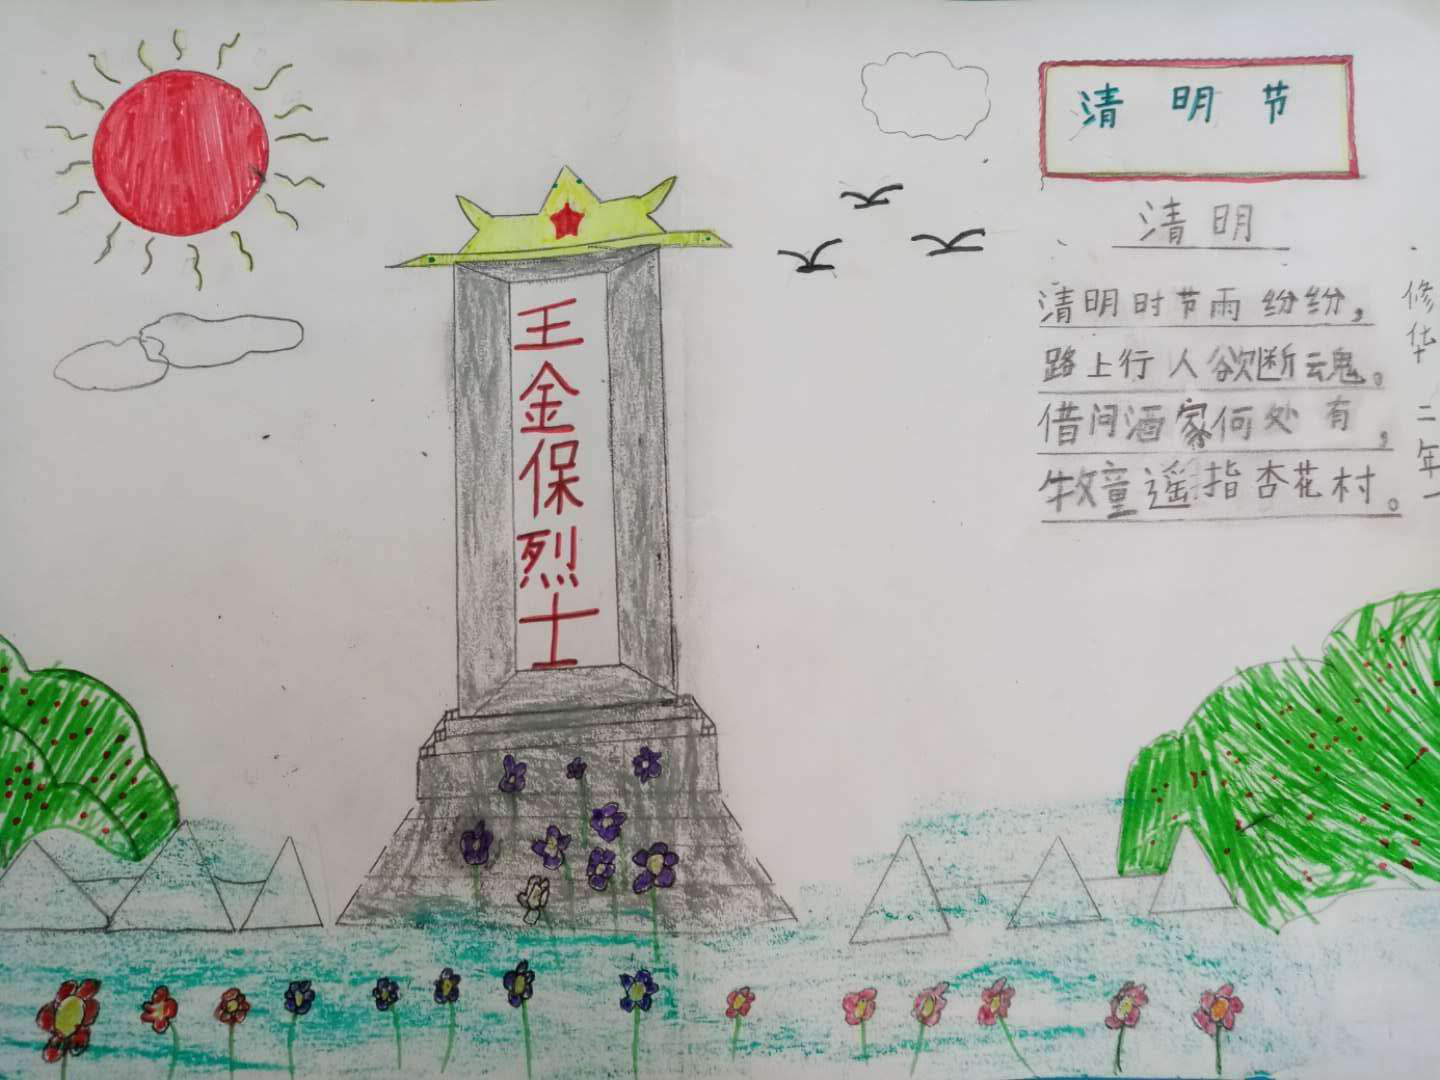 清明节
清明
清明时节雨纷纷，
路上行人欲断魂。
借问酒家何处有，
牧童遥指杏花村。
王金保烈士
修华 二年一